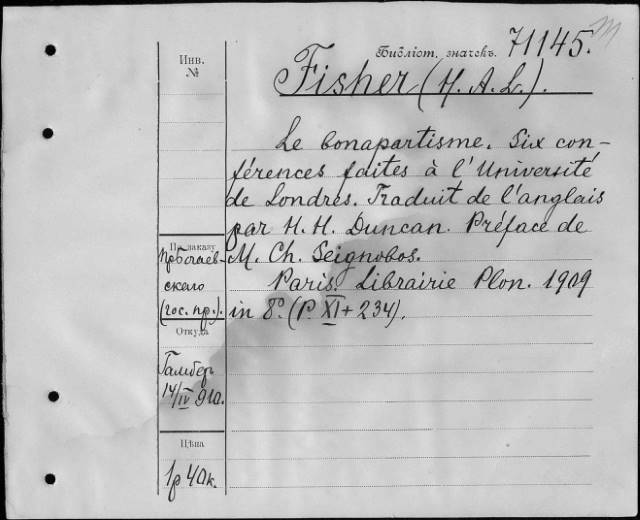 Библіот. значекъ. 71145.
Инв.
№
Fisher (H. A. L.).
Le bonapartisme. Six con-
férences faites à l'Université
de Londres. Traduit de l'anglais
par H. H. Duncan. Préface de
M. Ch. Seignobos.
Paris. Librairie Plon. 1909
in 8°. (P. XI + 234).
По заказу
скаго
(гос. пр.).
Откуда
Гамбер
14/IV 910.
Цѣна
1р 40к.